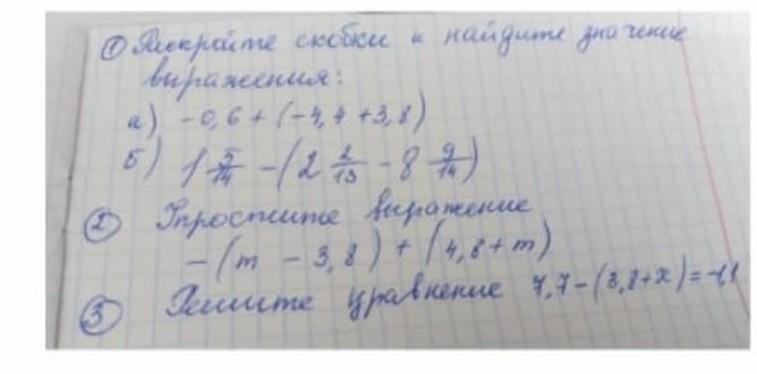 ① Раскройте скобки и найдите значение
выражения:
а) -0,6 + (-4,4 + 3,8)
б) 1 5/14 - (2 2/13 - 8 9/14)
② Упростите выражение
- (m - 3,8) + (4,8 + m)
③ Решите уравнение 7,7 - (3,8 + x) = -1,1